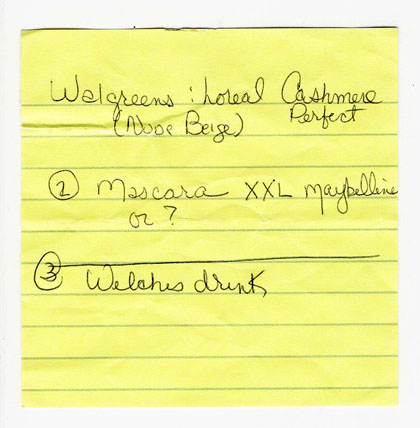 Walgreens : Loreal Cashmere
Perfect
(Nude Beige)
② Mascara XXL Maybelline
or ?
③ Welches drink